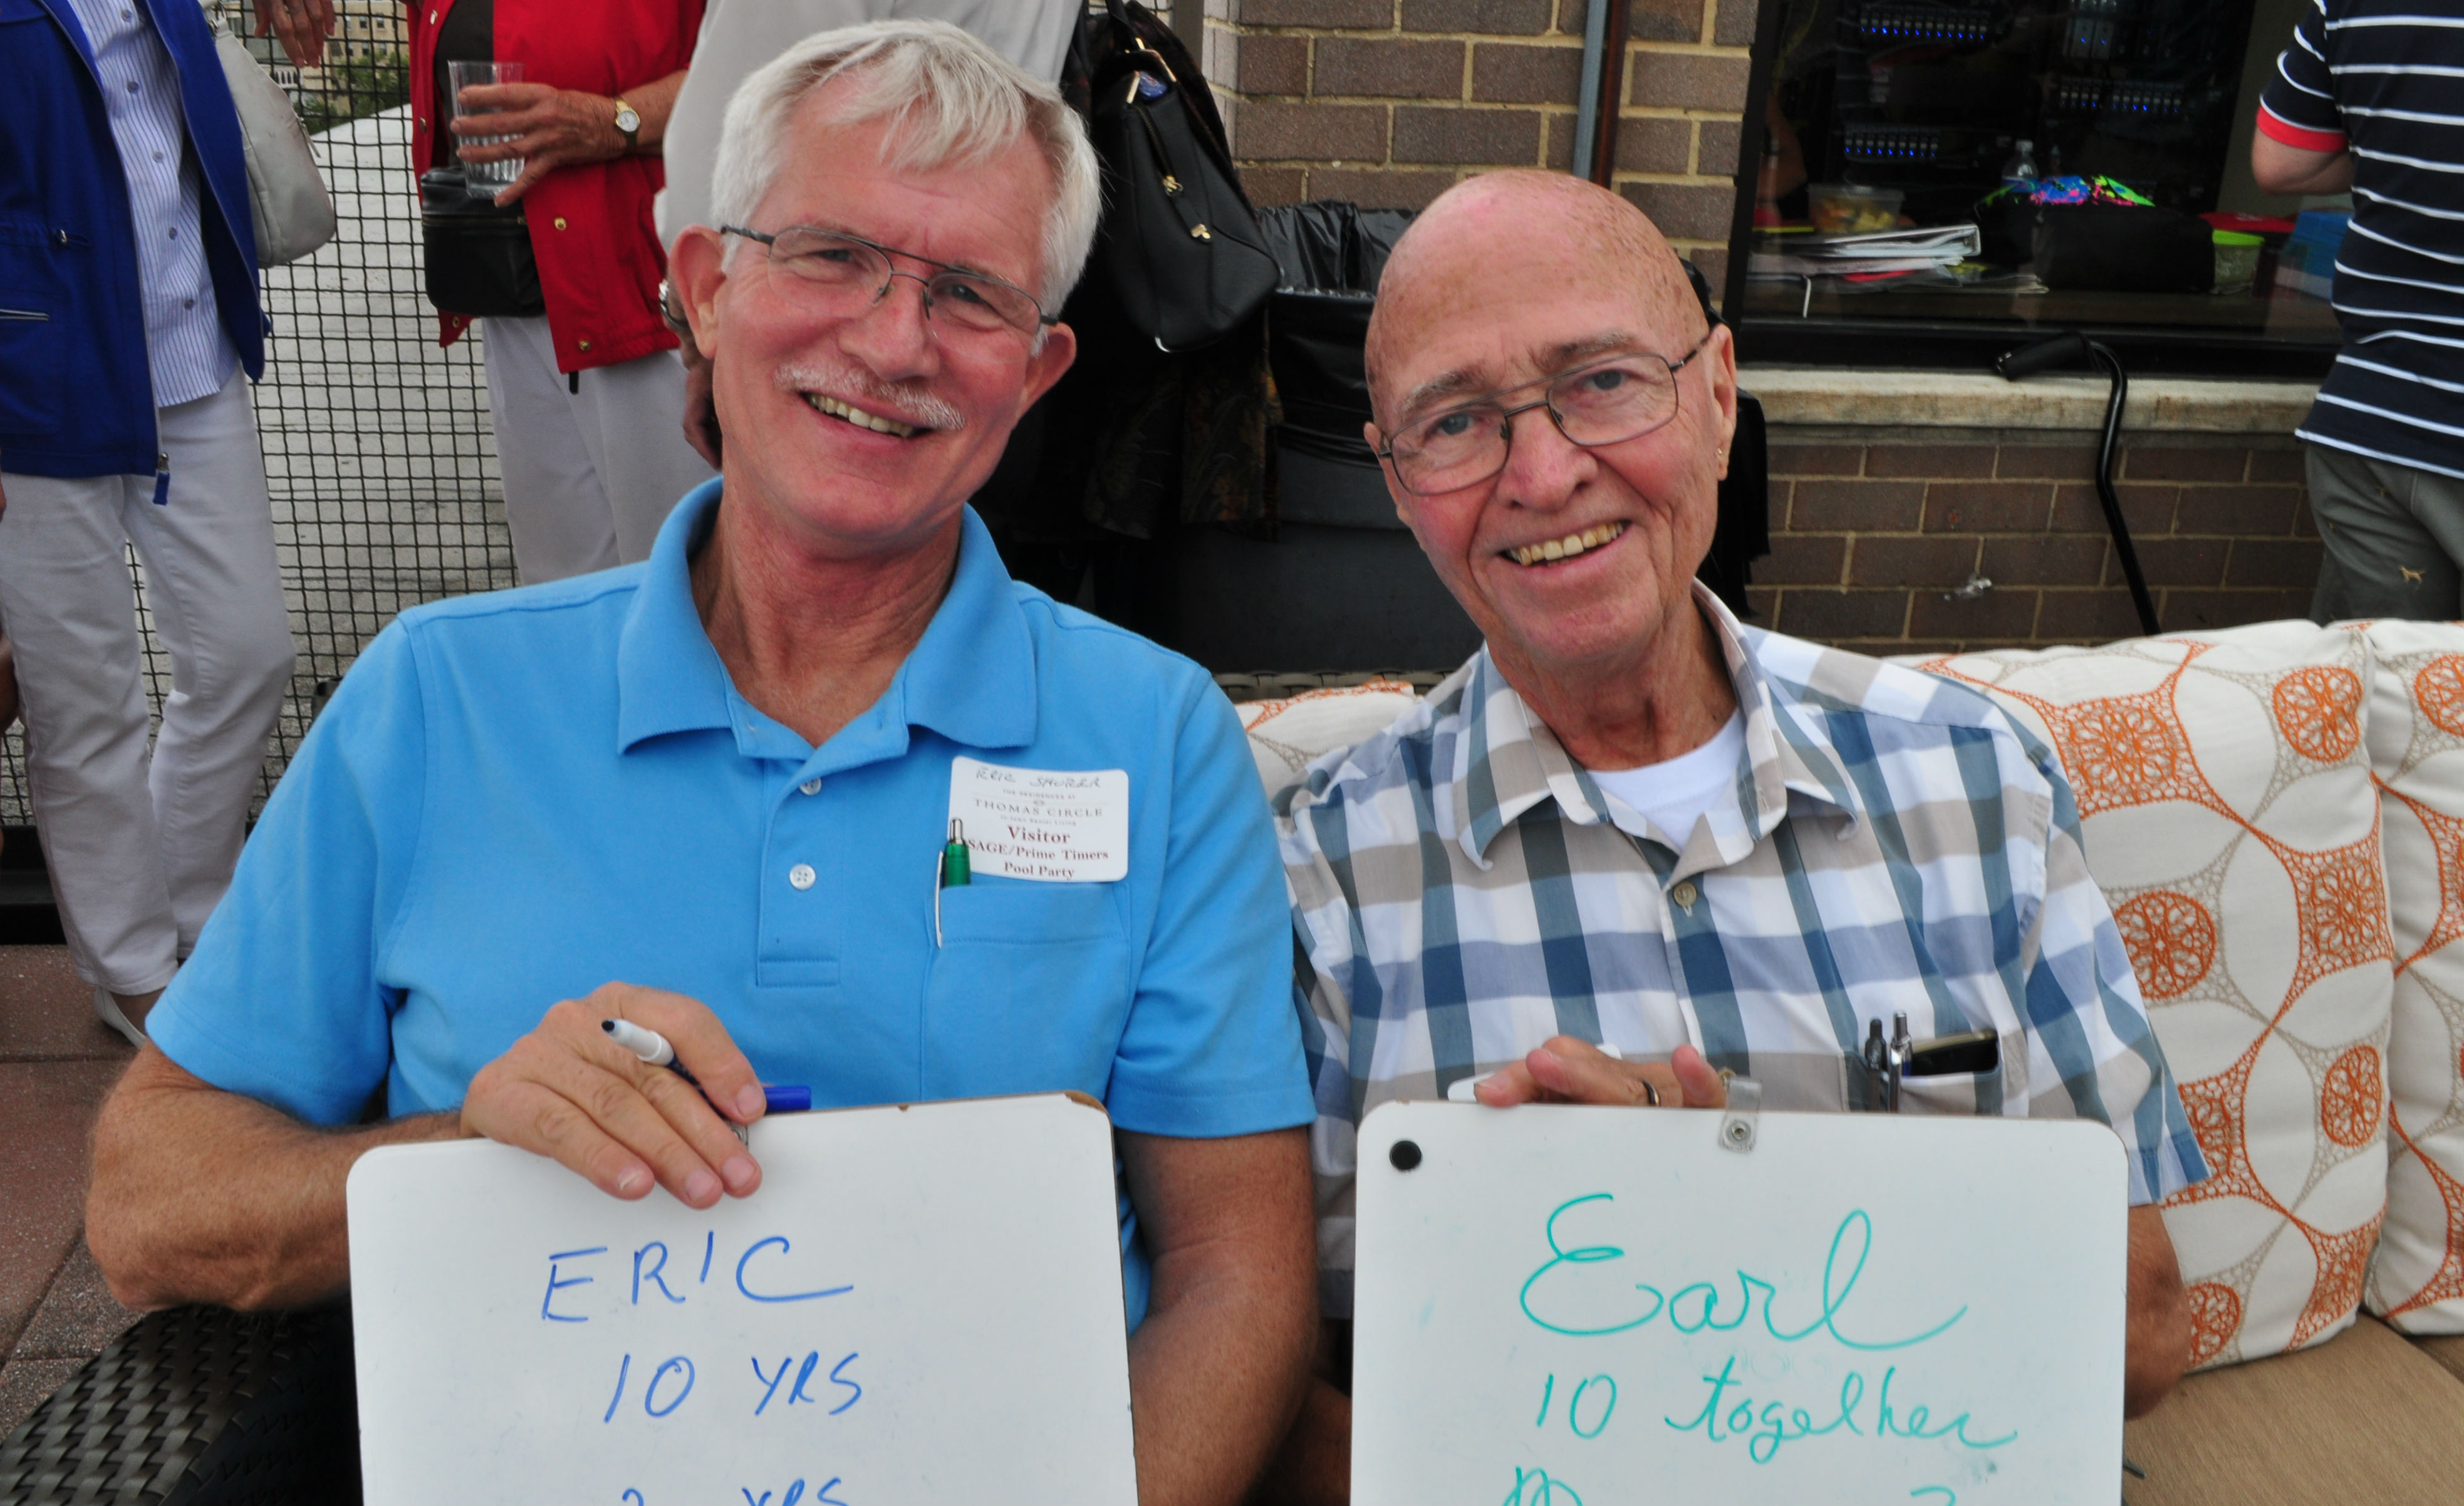 ERIC SHURER
THE RESIDENCES AT
THOMAS CIRCLE
Visitor
SAGE/Prime Timers
Pool Party
ERIC
10 YRS
YRS
Earl
10 together